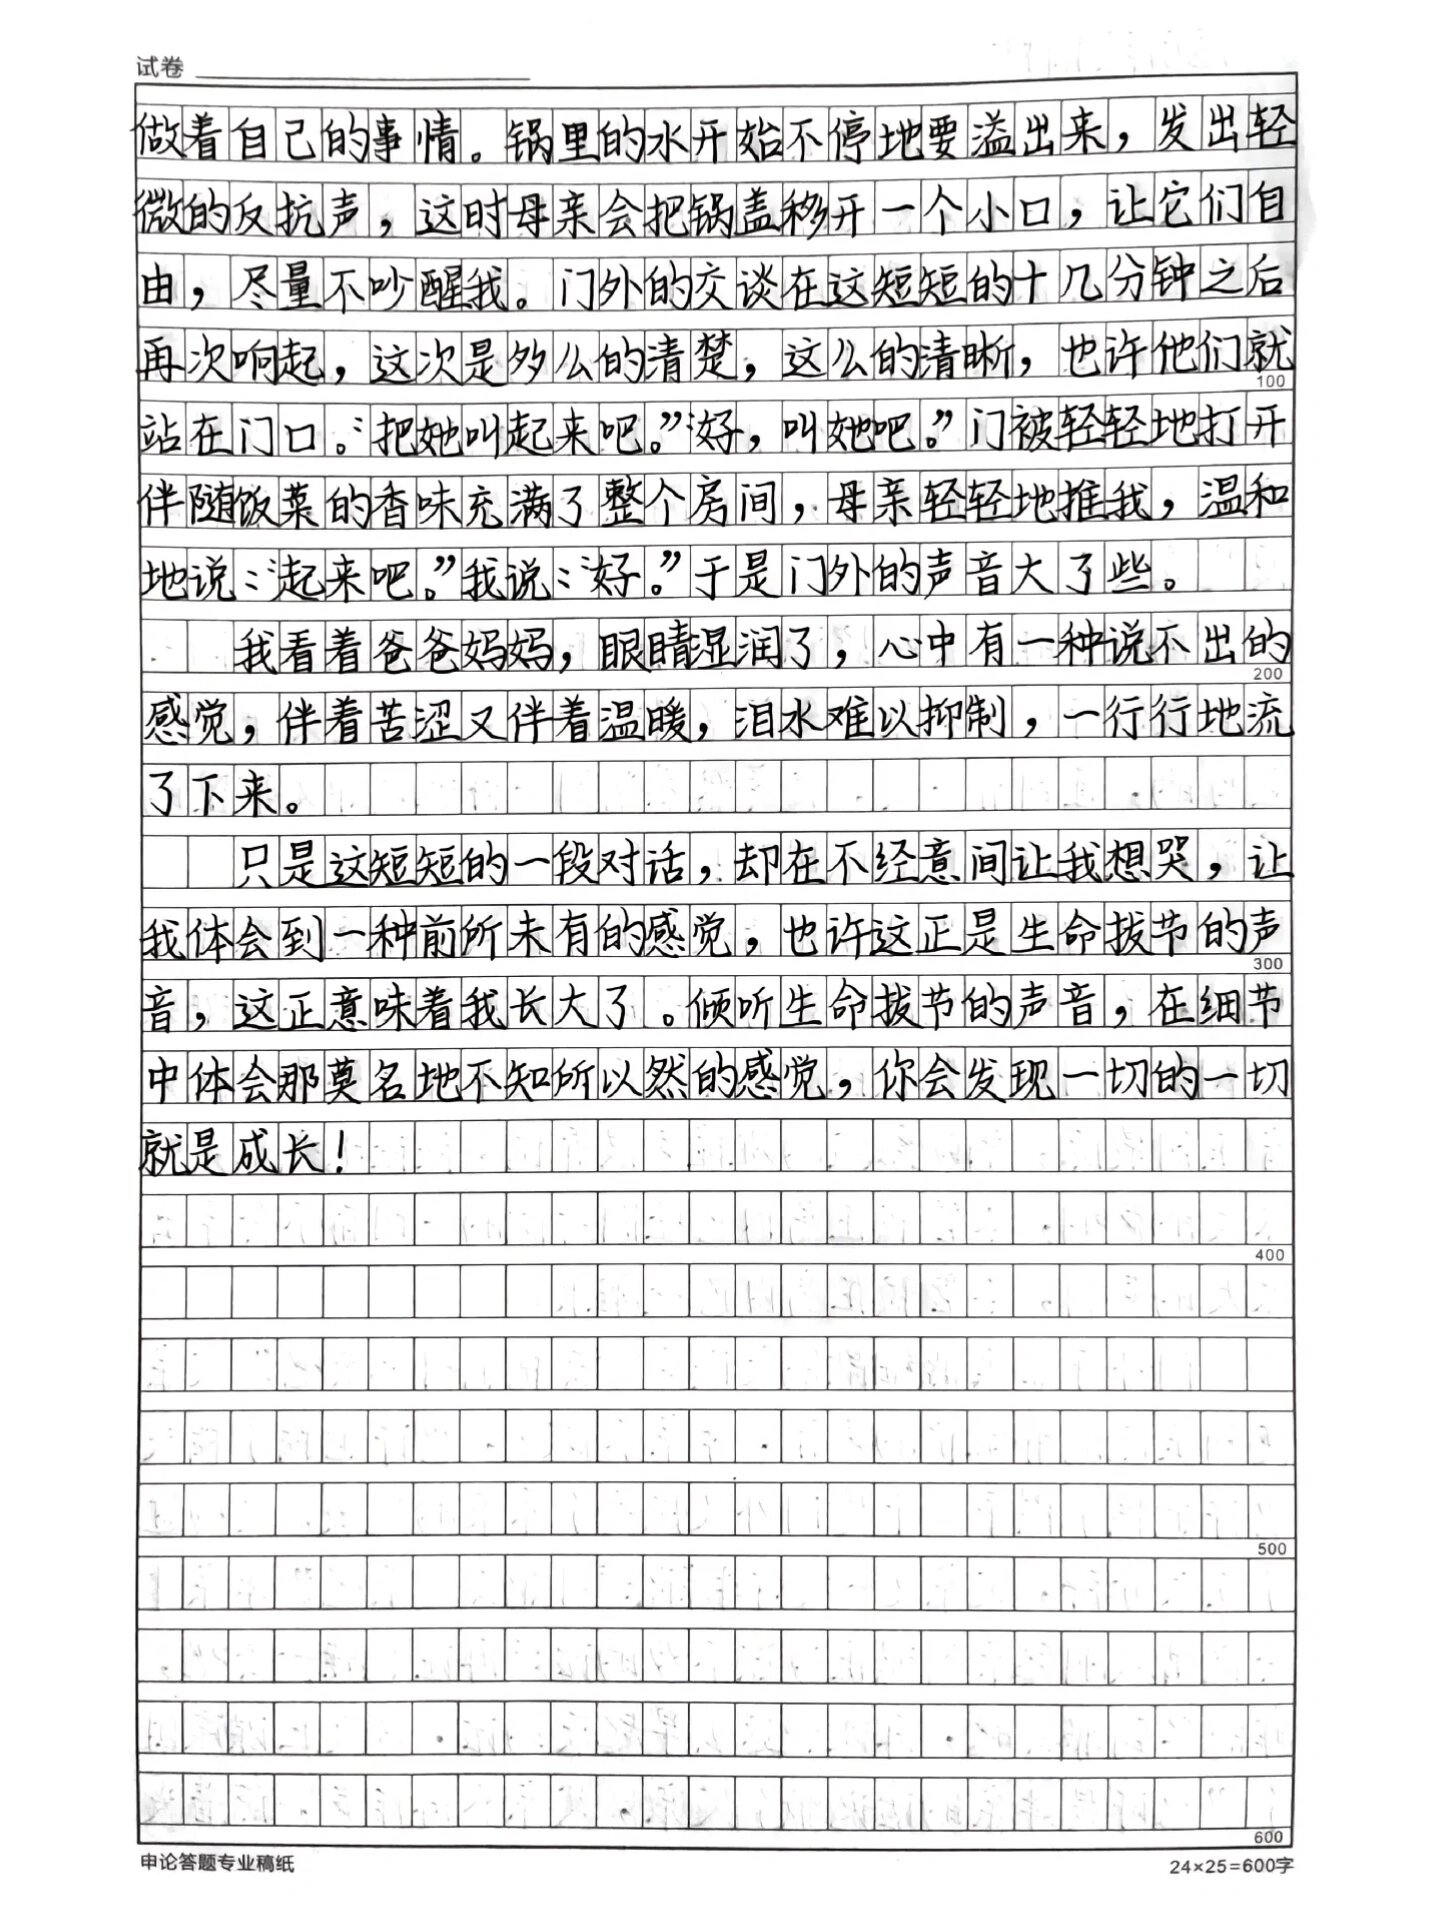 试卷
做着自己的事情。锅里的水开始不停地要溢出来，发出轻
微的反抗声，这时母亲会把锅盖移开一个小口，让它们自
由，尽量不吵醒我。门外的交谈在这短短的十几分钟之后
再次响起，这次是多么的清楚，这么的清晰，也许他们就
100
站在门口。“把她叫起来吧。”“好，叫她吧。”门被轻轻地打开
伴随饭菜的香味充满了整个房间，母亲轻轻地推我，温和
地说：“起来吧。”我说：“好。”于是门外的声音大了些。
我看着爸爸妈妈，眼睛湿润了，心中有一种说不出的
200
感觉，伴着苦涩又伴着温暖，泪水难以抑制，一行行地流
了下来。
只是这短短的一段对话，却在不经意间让我想哭，让
我体会到一种前所未有的感觉，也许这正是生命拔节的声
300
音，这正意味着我长大了。倾听生命拔节的声音，在细节
中体会那莫名地不知所以然的感觉，你会发现一切的一切
就是成长！
400
500
600
申论答题专业稿纸
24×25=600字